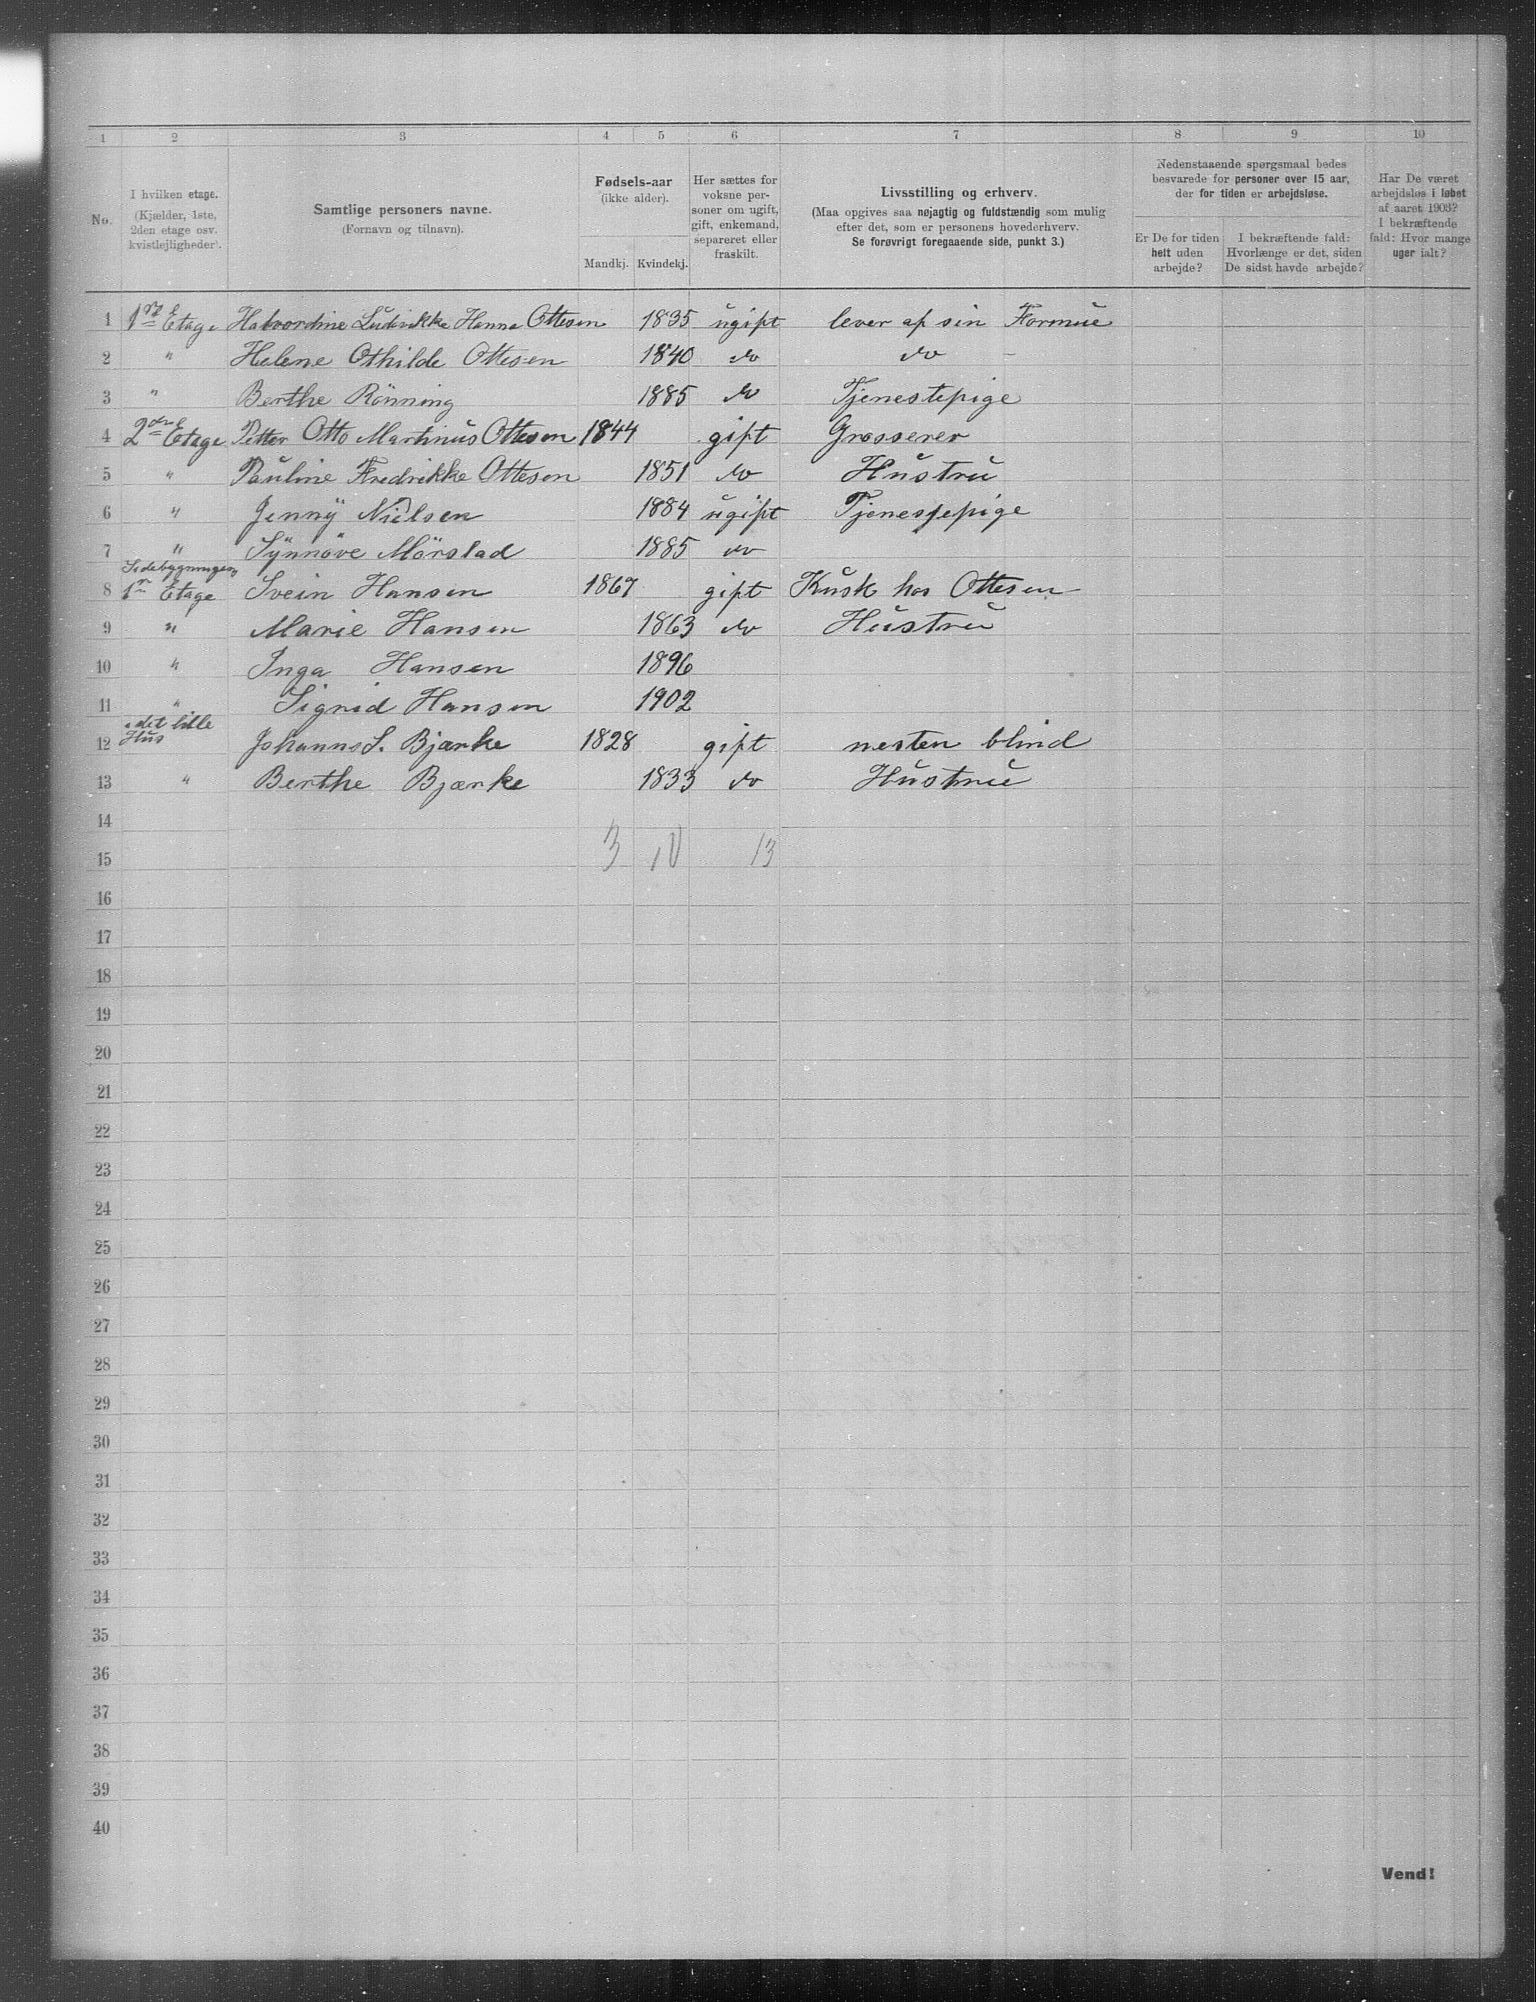 1 2 3 4 5 6 7 8 9 10
No.
I hvilken etage.
(Kjælder, 1ste,
2den etage osv.
kvistlejligheder).
Samtlige personers navne.
(Fornavn og tilnavn).
Fødsels-aar
(ikke alder).
Mandkj. Kvindekj.
Her sættes for
voksne per-
soner om ugift,
gift, enkemand,
separeret eller
fraskilt.
Livsstilling og erhverv.
(Maa opgives saa nøjagtig og fuldstændig som mulig
efter det, som er personens hovederhverv.
Se forøvrigt foregaaende side, punkt 3.)
Nedenstaaende spørgsmaal bedes
besvarede for personer over 15 aar,
der for tiden er arbejdsløse.
Er De for tiden
helt uden
arbejde?
I bekræftende fald:
Hvorlænge er det, siden
De sidst havde arbejde?
Har De været
arbejdsløs i løbet
af aaret 1903?
I bekræftende
fald: Hvor mange
uger ialt?
1 1ste Etage Halvordine Ludvikke Hanna Ottesen 1835 ugift lever af sin Formue
2 " Helene Othilde Ottesen 1840 do do -
3 " Berthe Rönning 1885 do Tjenestepige
4 2den Etage Petter Otto Martinus Ottesen 1844 gift Grosserer
5 " Pauline Fredrikke Ottesen 1851 do Hustru
6 " Jenny Nielsen 1884 ugift Tjenestepige
7 " Synnöve Mörstad 1885 do
Sidebygningen
8 1n Etage Svein Hansen 1867 gift Kusk hos Ottesen
9 " Marie Hansen 1863 do Hustru
10 " Inga Hansen 1896
11 " Sigrid Hansen 1902
i det lille
12 Hus Johanns S. Bjærke 1828 gift nesten blind
13 " Berthe Bjærke 1833 do Hustru
14
15 3 10 13
16
17
18
19
20
21
22
23
24
25
26
27
28
29
30
31
32
33
34
35
36
37
38
39
40
Vend!